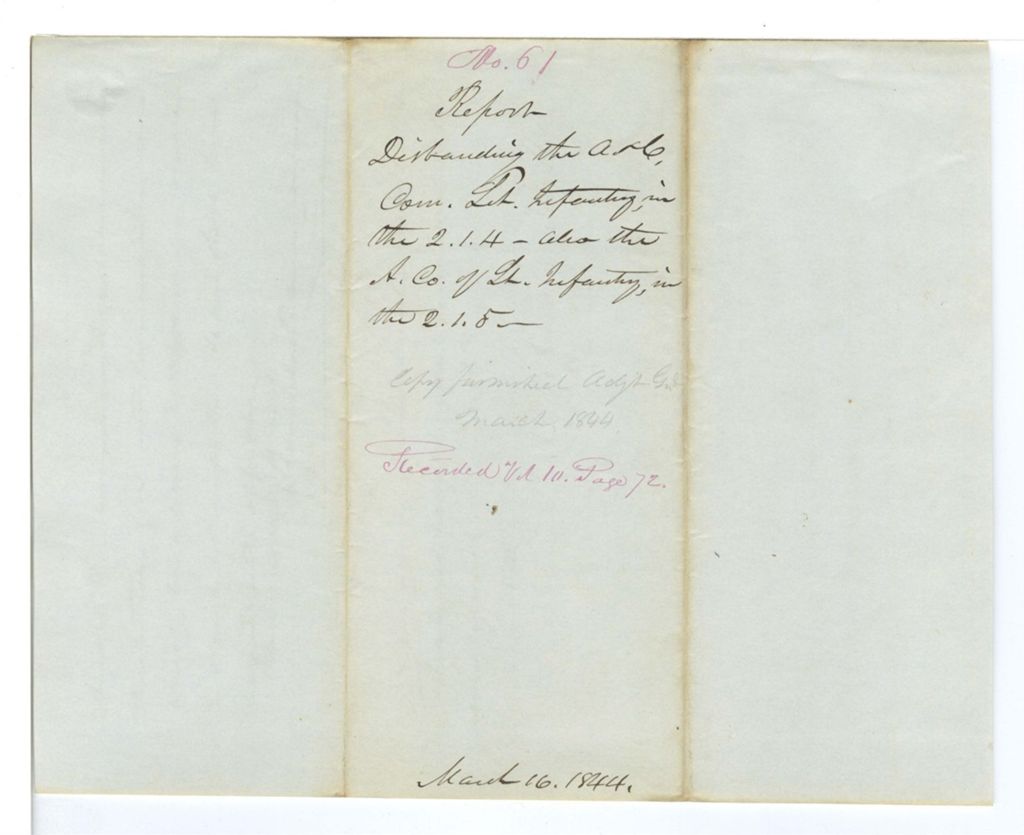 No. 61
Report
Disbanding the A & C,
Com. Lt. Infantry, in
the 2.1.4 – also the
A. Co. of Lt. Infantry, in
the 2.1.5 –
Copy furnished Adjt Gnl
March 1844
Recorded Vol 10. Page 72.
March 16. 1844.